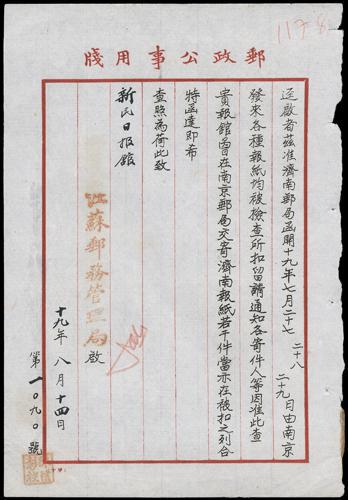 1178
郵政公事用牋
逕啟者茲准濟南郵局函開十九年七月二十七二十八二十九日由南京
發來各種報紙均被檢查所扣留請通知各寄件人等因准此查
貴報館曾在南京郵局交寄濟南報紙若干件當亦在被扣之列合
特函達即希
查照為荷此致
新民日报館
江蘇郵務管理局啟
十九年八月十四日
第一〇九〇號